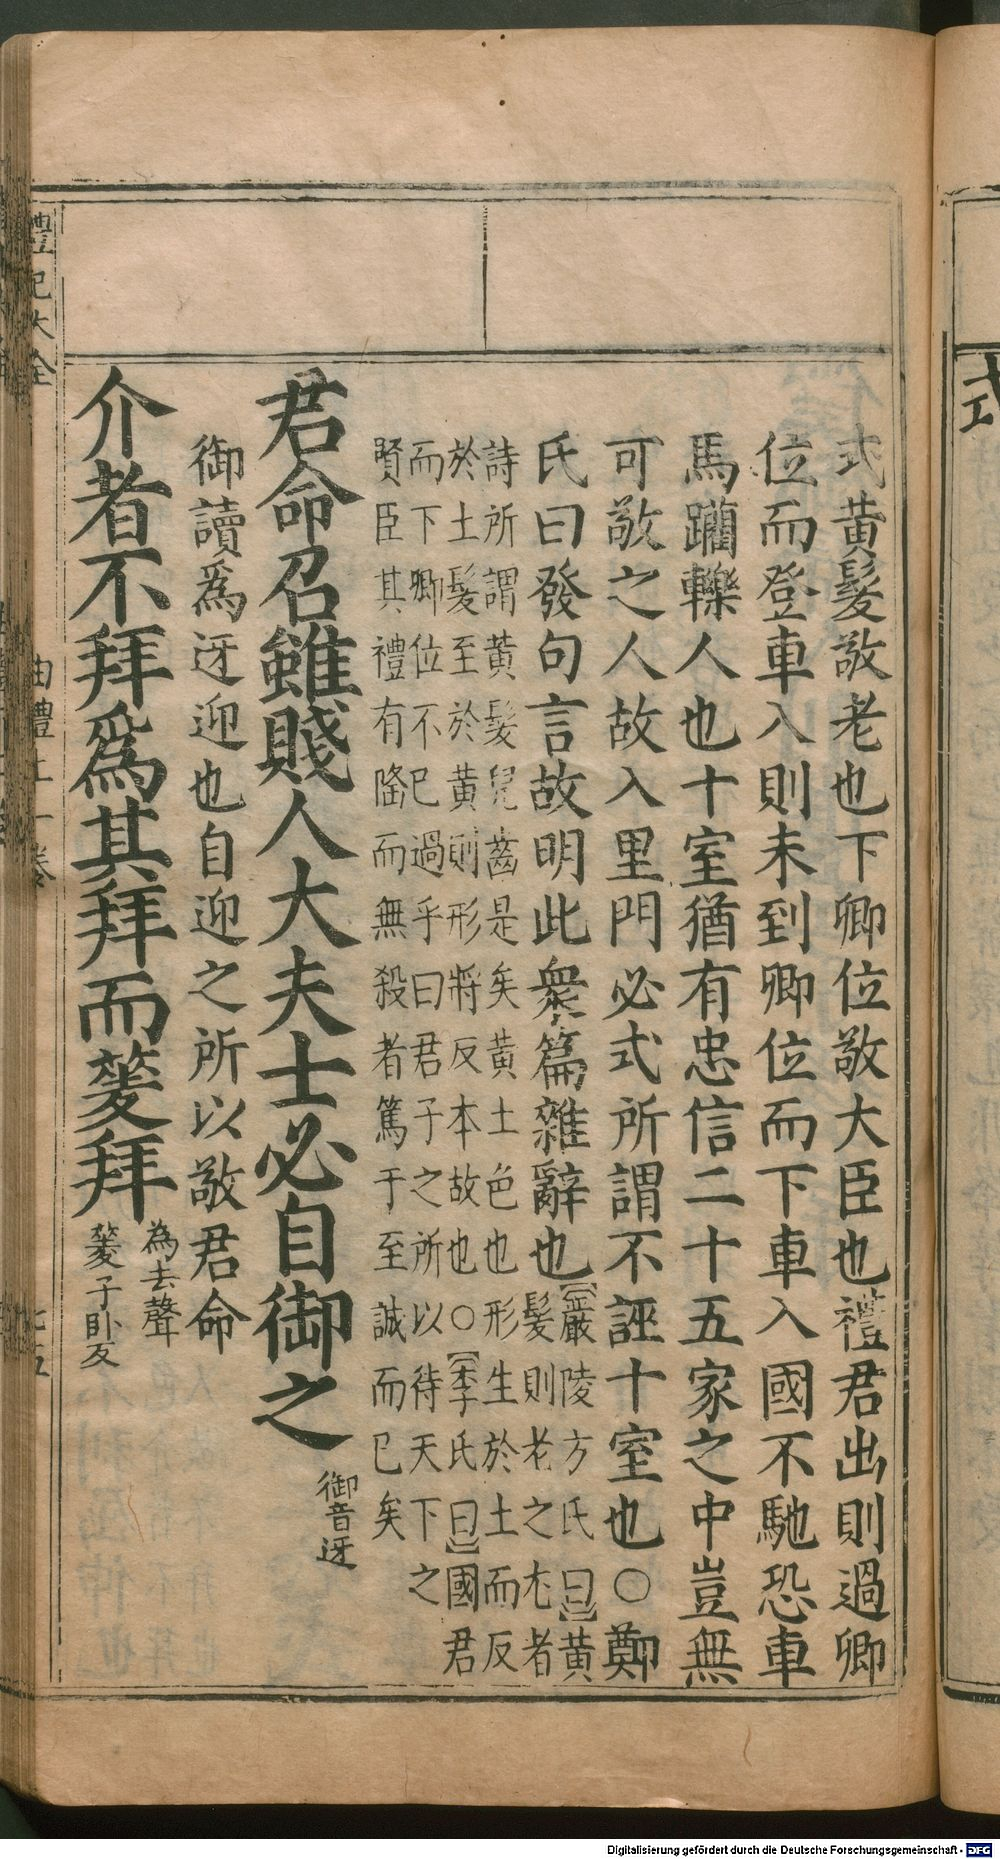 式黃髮敬老也下卿位敬大臣也禮君出則過卿
位而登車入則未到卿位而下車入國不馳恐車
馬躪轢人也十室猶有忠信二十五家之中豈無
可敬之人故入里門必式所謂不誣十室也○鄭
氏曰發句言故明此衆篇雜辭也【嚴陵方氏曰】黃
髮則老之尤者
詩所謂黃髮兒齒是矣黃土色也形生於土而反
於土髮至於黃則形將反本故也○【李氏曰】國君
而下卿位不已過乎曰君子之所以待天下之
賢臣其禮有隆而無殺者篤于至誠而已矣
君命召雖賤人大夫士必自御之
御音迓
御讀爲迓迎也自迎之所以敬君命
介者不拜爲其拜而蓌拜
為去聲
蓌子卧反
禮記大全
曲禮上一卷
七五
式
Digitalisierung gefördert durch die Deutsche Forschungsgemeinschaft - DFG